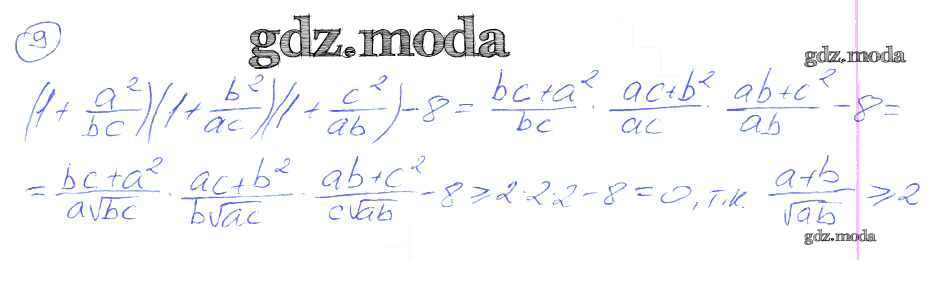 9
gdz.moda
gdz.moda
(1 + a²/bc)(1 + b²/ac)(1 + c²/ab) - 8 = (bc+a²)/bc · (ac+b²)/ac · (ab+c²)/ab - 8 =
= (bc+a²)/(a√bc) · (ac+b²)/(b√ac) · (ab+c²)/(c√ab) - 8 ⩾ 2·2·2 - 8 = 0, т.к. (a+b)/√ab ⩾ 2
gdz.moda